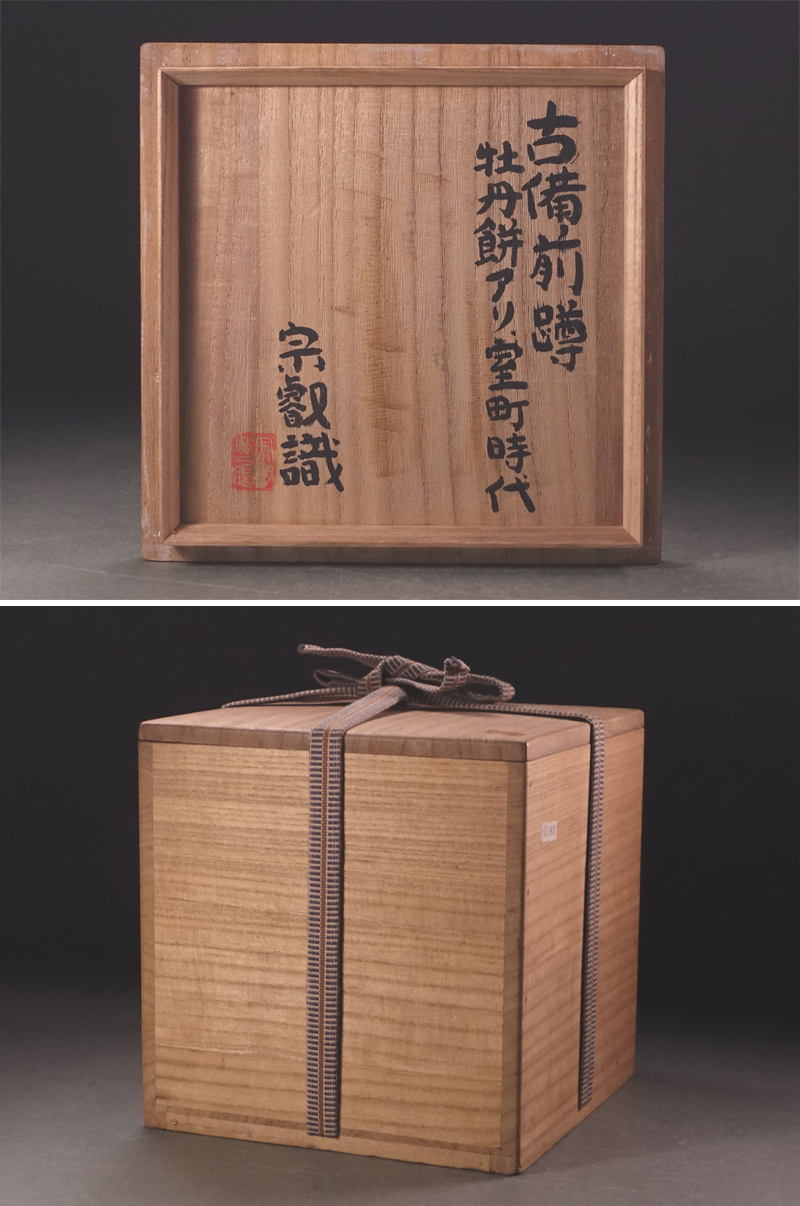 古備前蹲
牡丹餅アリ、室町時代
宗叡識